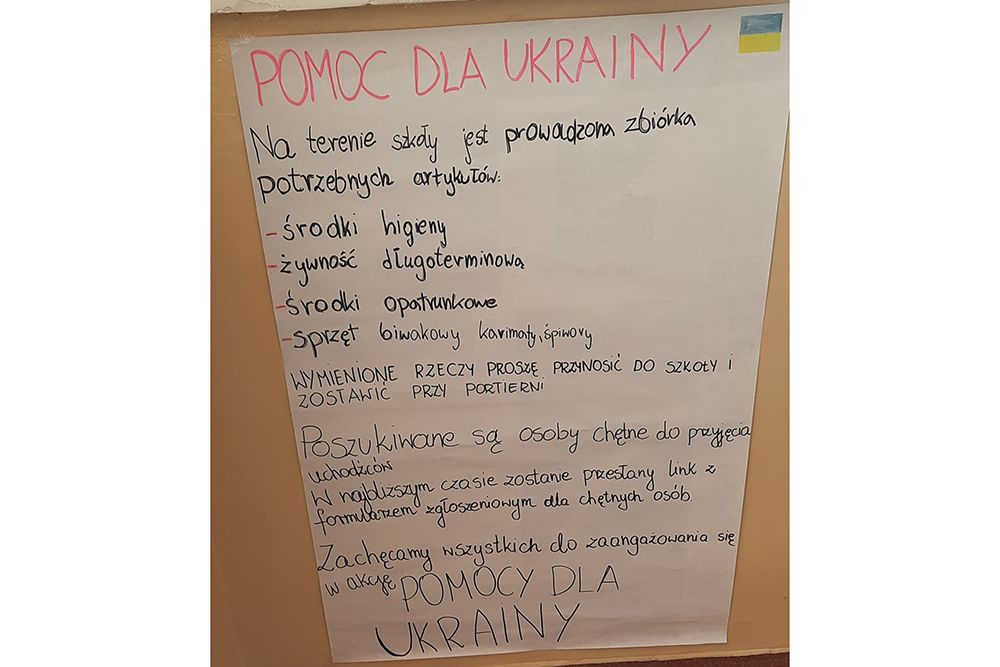 POMOC DLA UKRAINY
Na terenie szkoły jest prowadzona zbiórka
potrzebnych artykułów:
- środki higieny
- żywność długoterminową
- środki opatrunkowe
- sprzęt biwakowy karimaty, śpiwory
WYMIENIONE RZECZY PROSZĘ PRZYNOSIĆ DO SZKOŁY I
ZOSTAWIĆ PRZY PORTIERNI
Poszukiwane są osoby chętne do przyjęcia
uchodźców
W najbliższym czasie zostanie przesłany link z
formularzem zgłoszeniowym dla chętnych osób.
Zachęcamy wszystkich do zaangażowania się
w akcję POMOCY DLA
UKRAINY